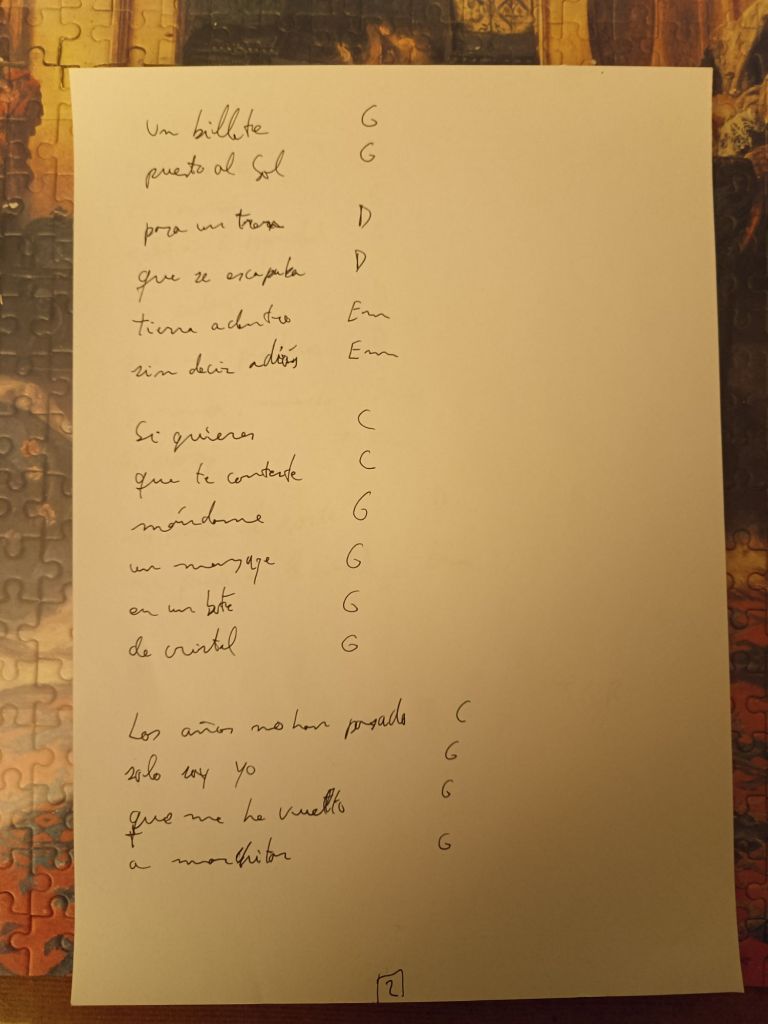 un billete G
puesto al Sol G
para un tren D
que se escapaba D
tierra adentro Em
sin decir adiós Em
Si quieres C
que te conteste C
mándame G
un mensaje G
en un bote G
de cristal G
Los años no han pasado C
solo soy yo G
que me he vuelto G
a marchitar G
2